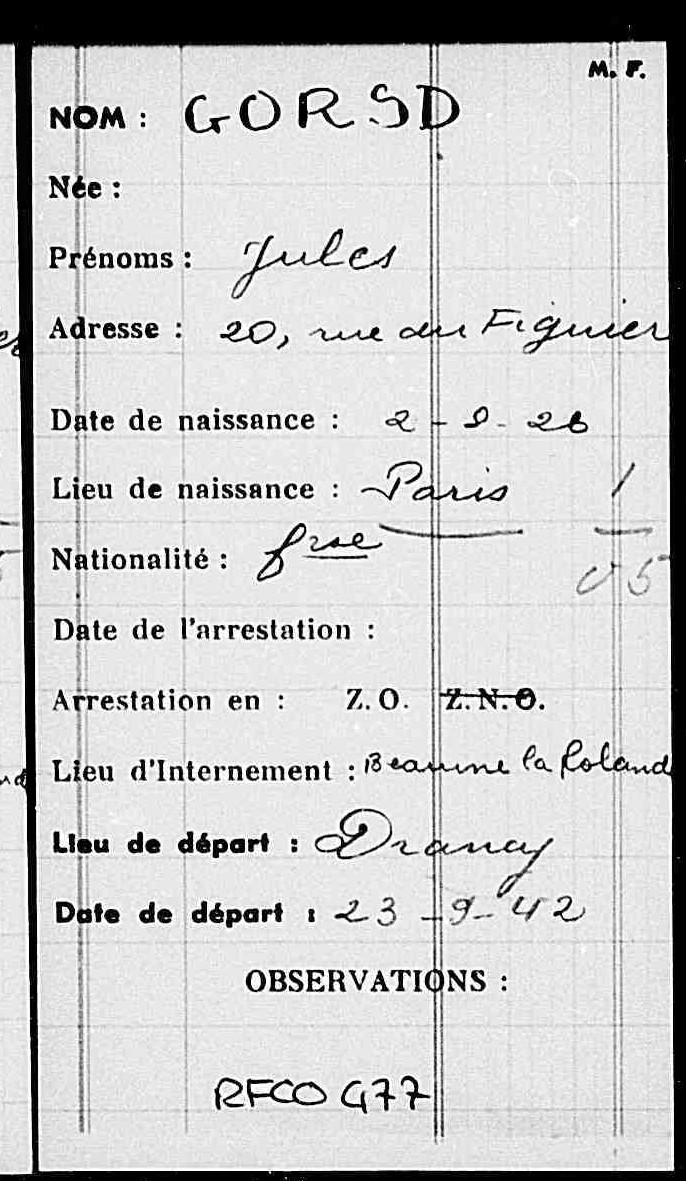 M. F.
NOM : GORSD
Née :
Prénoms : Jules
Adresse : 20, rue du Figuier
Date de naissance : 2 - 9 - 28
Lieu de naissance : Paris 1
Nationalité : frse
Date de l'arrestation :
Arrestation en : Z.O. Z.N.O.
Lieu d'Internement : Beaune la Roland
Lieu de départ : Drancy
Date de départ : 23 - 9 - 42
OBSERVATIONS :